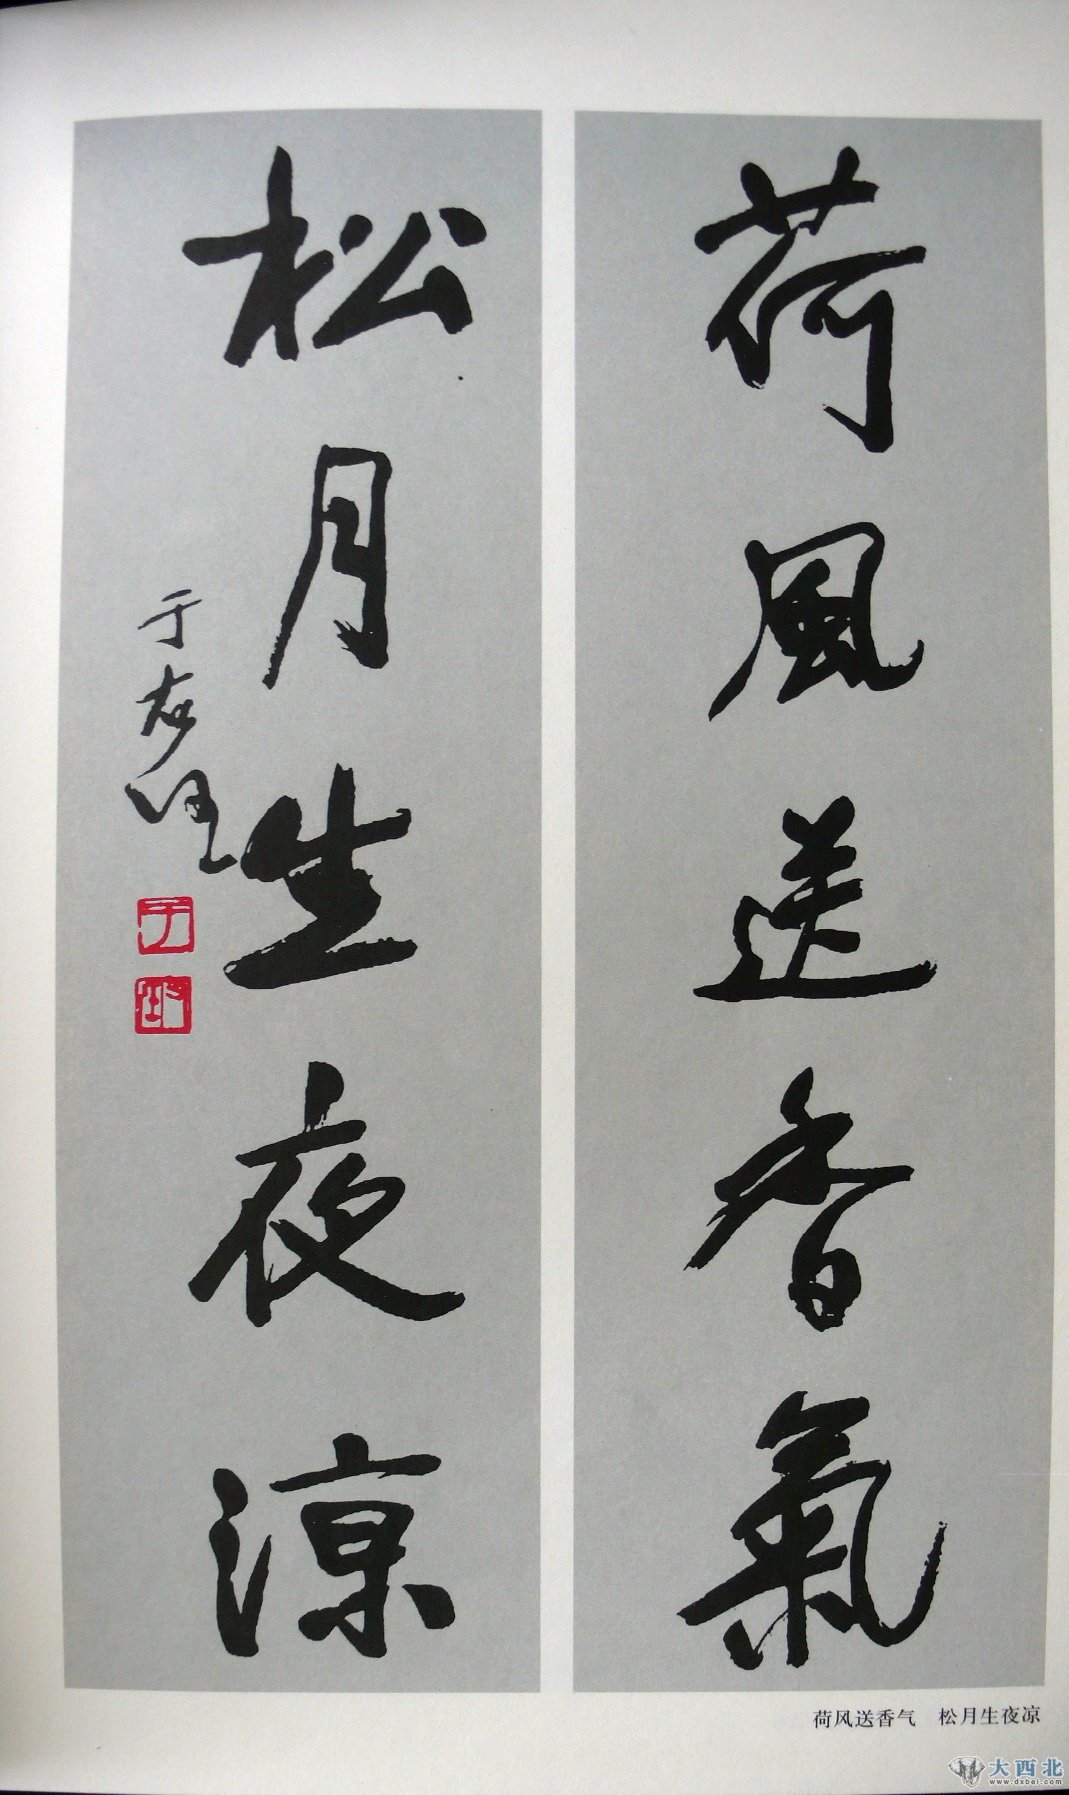 荷風送香氣
松月生夜涼
于右任
荷风送香气　松月生夜凉
大西北
www.dxbei.com